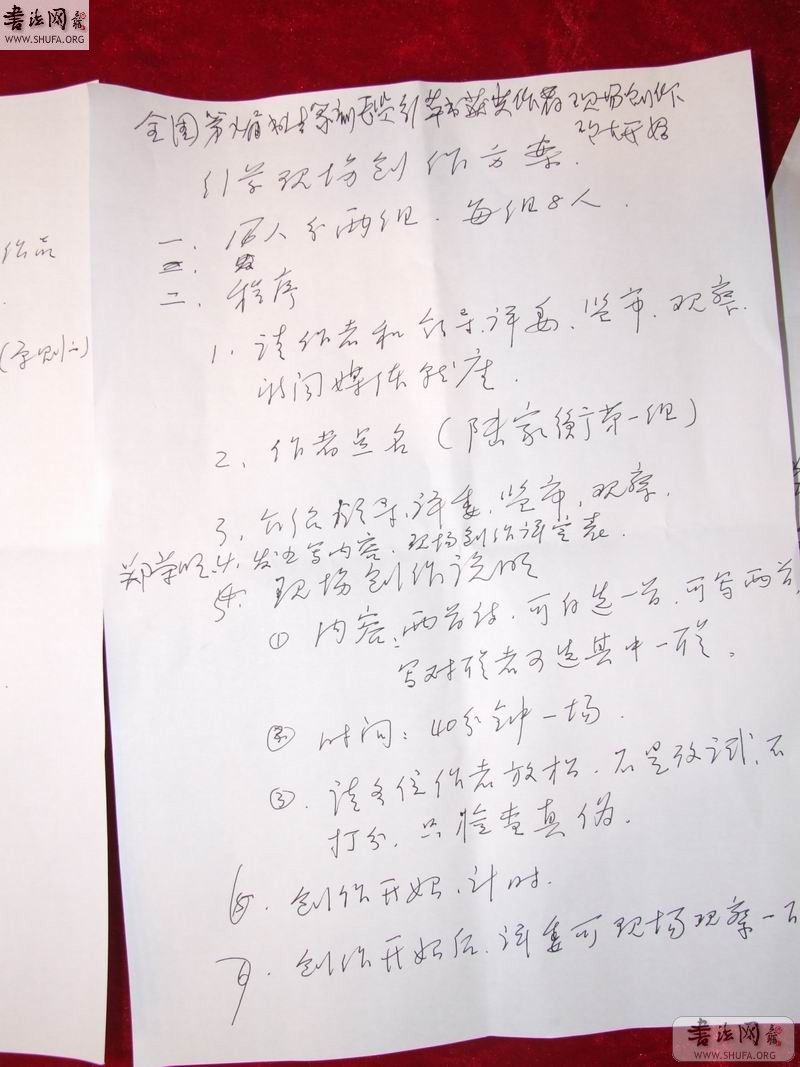 书法网
WWW.SHUFA.ORG
全国第九届书法篆刻展览引草书获奖作者现场创作
现在开始
引草现场创作方案
一、16人分两组,每组8人.
二、程序
1、请作者和领导、评委、监审、观察、
新闻媒体就座.
2、作者点名(陆家衡第一组)
3、介绍领导、评委、监审、观察.
郑荣明 4、发书写内容、现场创作评定表
5、现场创作说明
① 内容:两首诗,可自选一首,可写两首,
写对联者可选其中一联。
② 时间:40分钟一场.
③、请各位作者放松,不是考试,不
打分,只检查真伪.
6、创作开始、计时.
7、创作开始后,评委可现场观察一下
作品
(原则上)
书法网
WWW.SHUFA.ORG